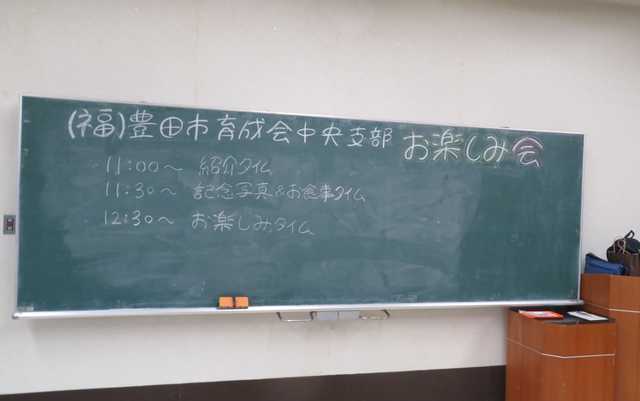 (福)豊田市育成会中央支部 お楽しみ会
11:00～ 紹介タイム
11:30～ 記念写真&お食事タイム
12:30～ お楽しみタイム